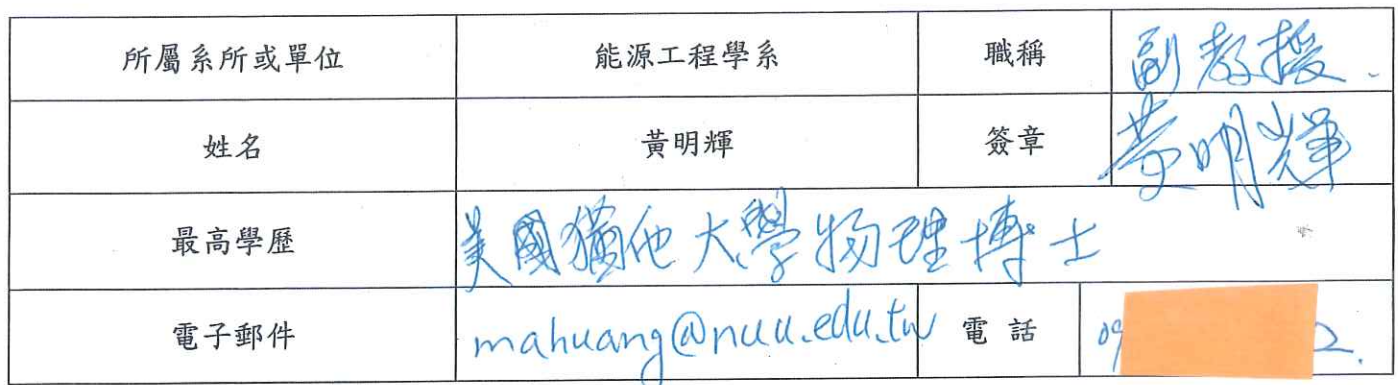 所屬系所或單位 能源工程學系 職稱 副教授.
姓名 黃明輝 簽章 黃明輝
最高學歷 美國猶他大學物理博士
電子郵件 mahuang@nuu.edu.tw 電話 09 2.